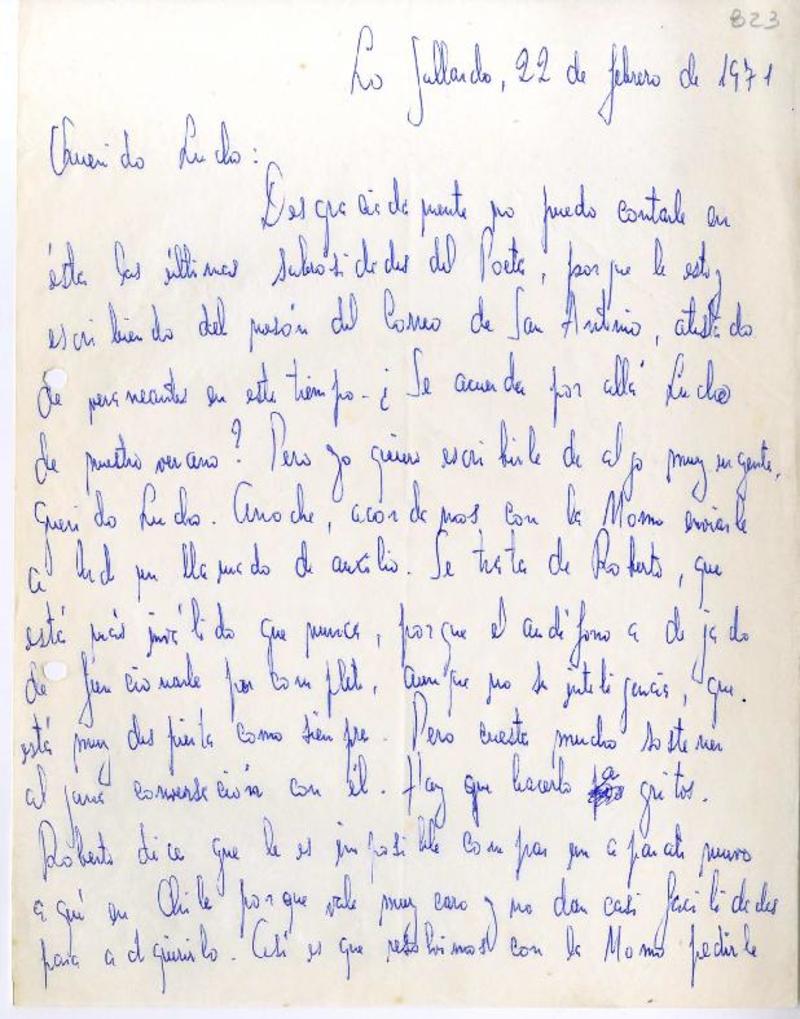 823
Lo Gallardo, 22 de febrero de 1971
Querido Lucho:
Desgraciadamente no puedo contarle en
ésta las últimas sabrosidades del Poeta, porque le estoy
escribiendo del mesón del Correo de San Antonio, atestado
de veraneantes en este tiempo. ¿Se acuerda por allá Lucho
de nuestro verano? Pero yo quiero escribirle de algo muy urgente,
querido Lucho. Anoche, acordamos con la Momo enviarle
a Ud un llamado de auxilio. Se trata de Roberto, que
está más inválido que nunca, porque el audífono a dejado
de funcionarle por completo, aunque no su inteligencia, que
está muy despierta como siempre. Pero cuesta mucho sostener
alguna conversación con él. Hay que hacerlo a gritos.
Roberto dice que le es imposible comprar un aparato nuevo
aquí en Chile porque vale muy caro y no dan casi facilidades
para adquirirlo. Así es que resolvimos con la Momo pedirle